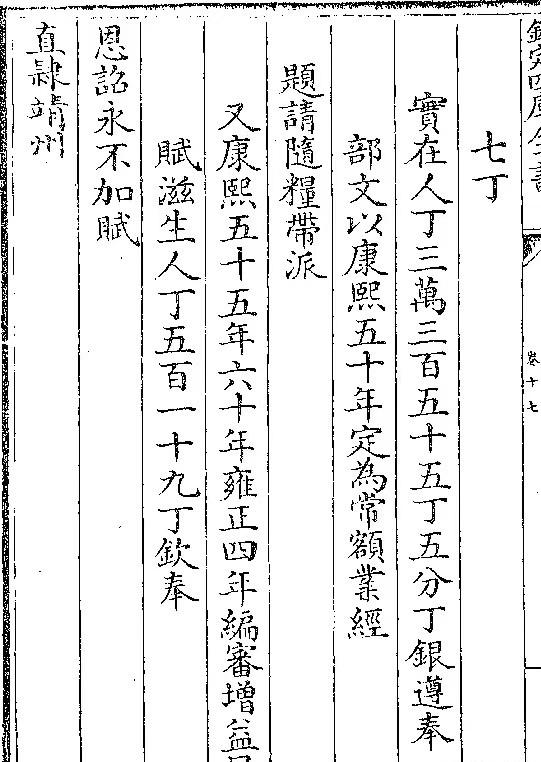 欽定四庫全書
卷十七
七丁
實在人丁三萬三百五十五丁五分丁銀遵奉
部文以康熙五十年定為常額業經
題請隨糧帶派
又康熙五十五年六十年雍正四年編審增益
賦滋生人丁五百一十九丁欽奉
恩詔永不加賦
直隸靖州